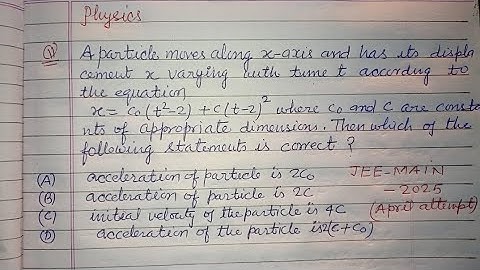 Physics
(11) A particle moves along x-axis and has its displa
cement x varying with time t according to
the equation
x = c₀(t²-2) + c(t-2)² where c₀ and c are consta
nts of appropriate dimensions. Then which of the
following statements is correct ?
(A) acceleration of particle is 2c₀ JEE-MAIN
(B) acceleration of particle is 2C - 2025
(C) initial velocity of the particle is 4C (April attempt)
(D) acceleration of the particle is 2(c+c₀)